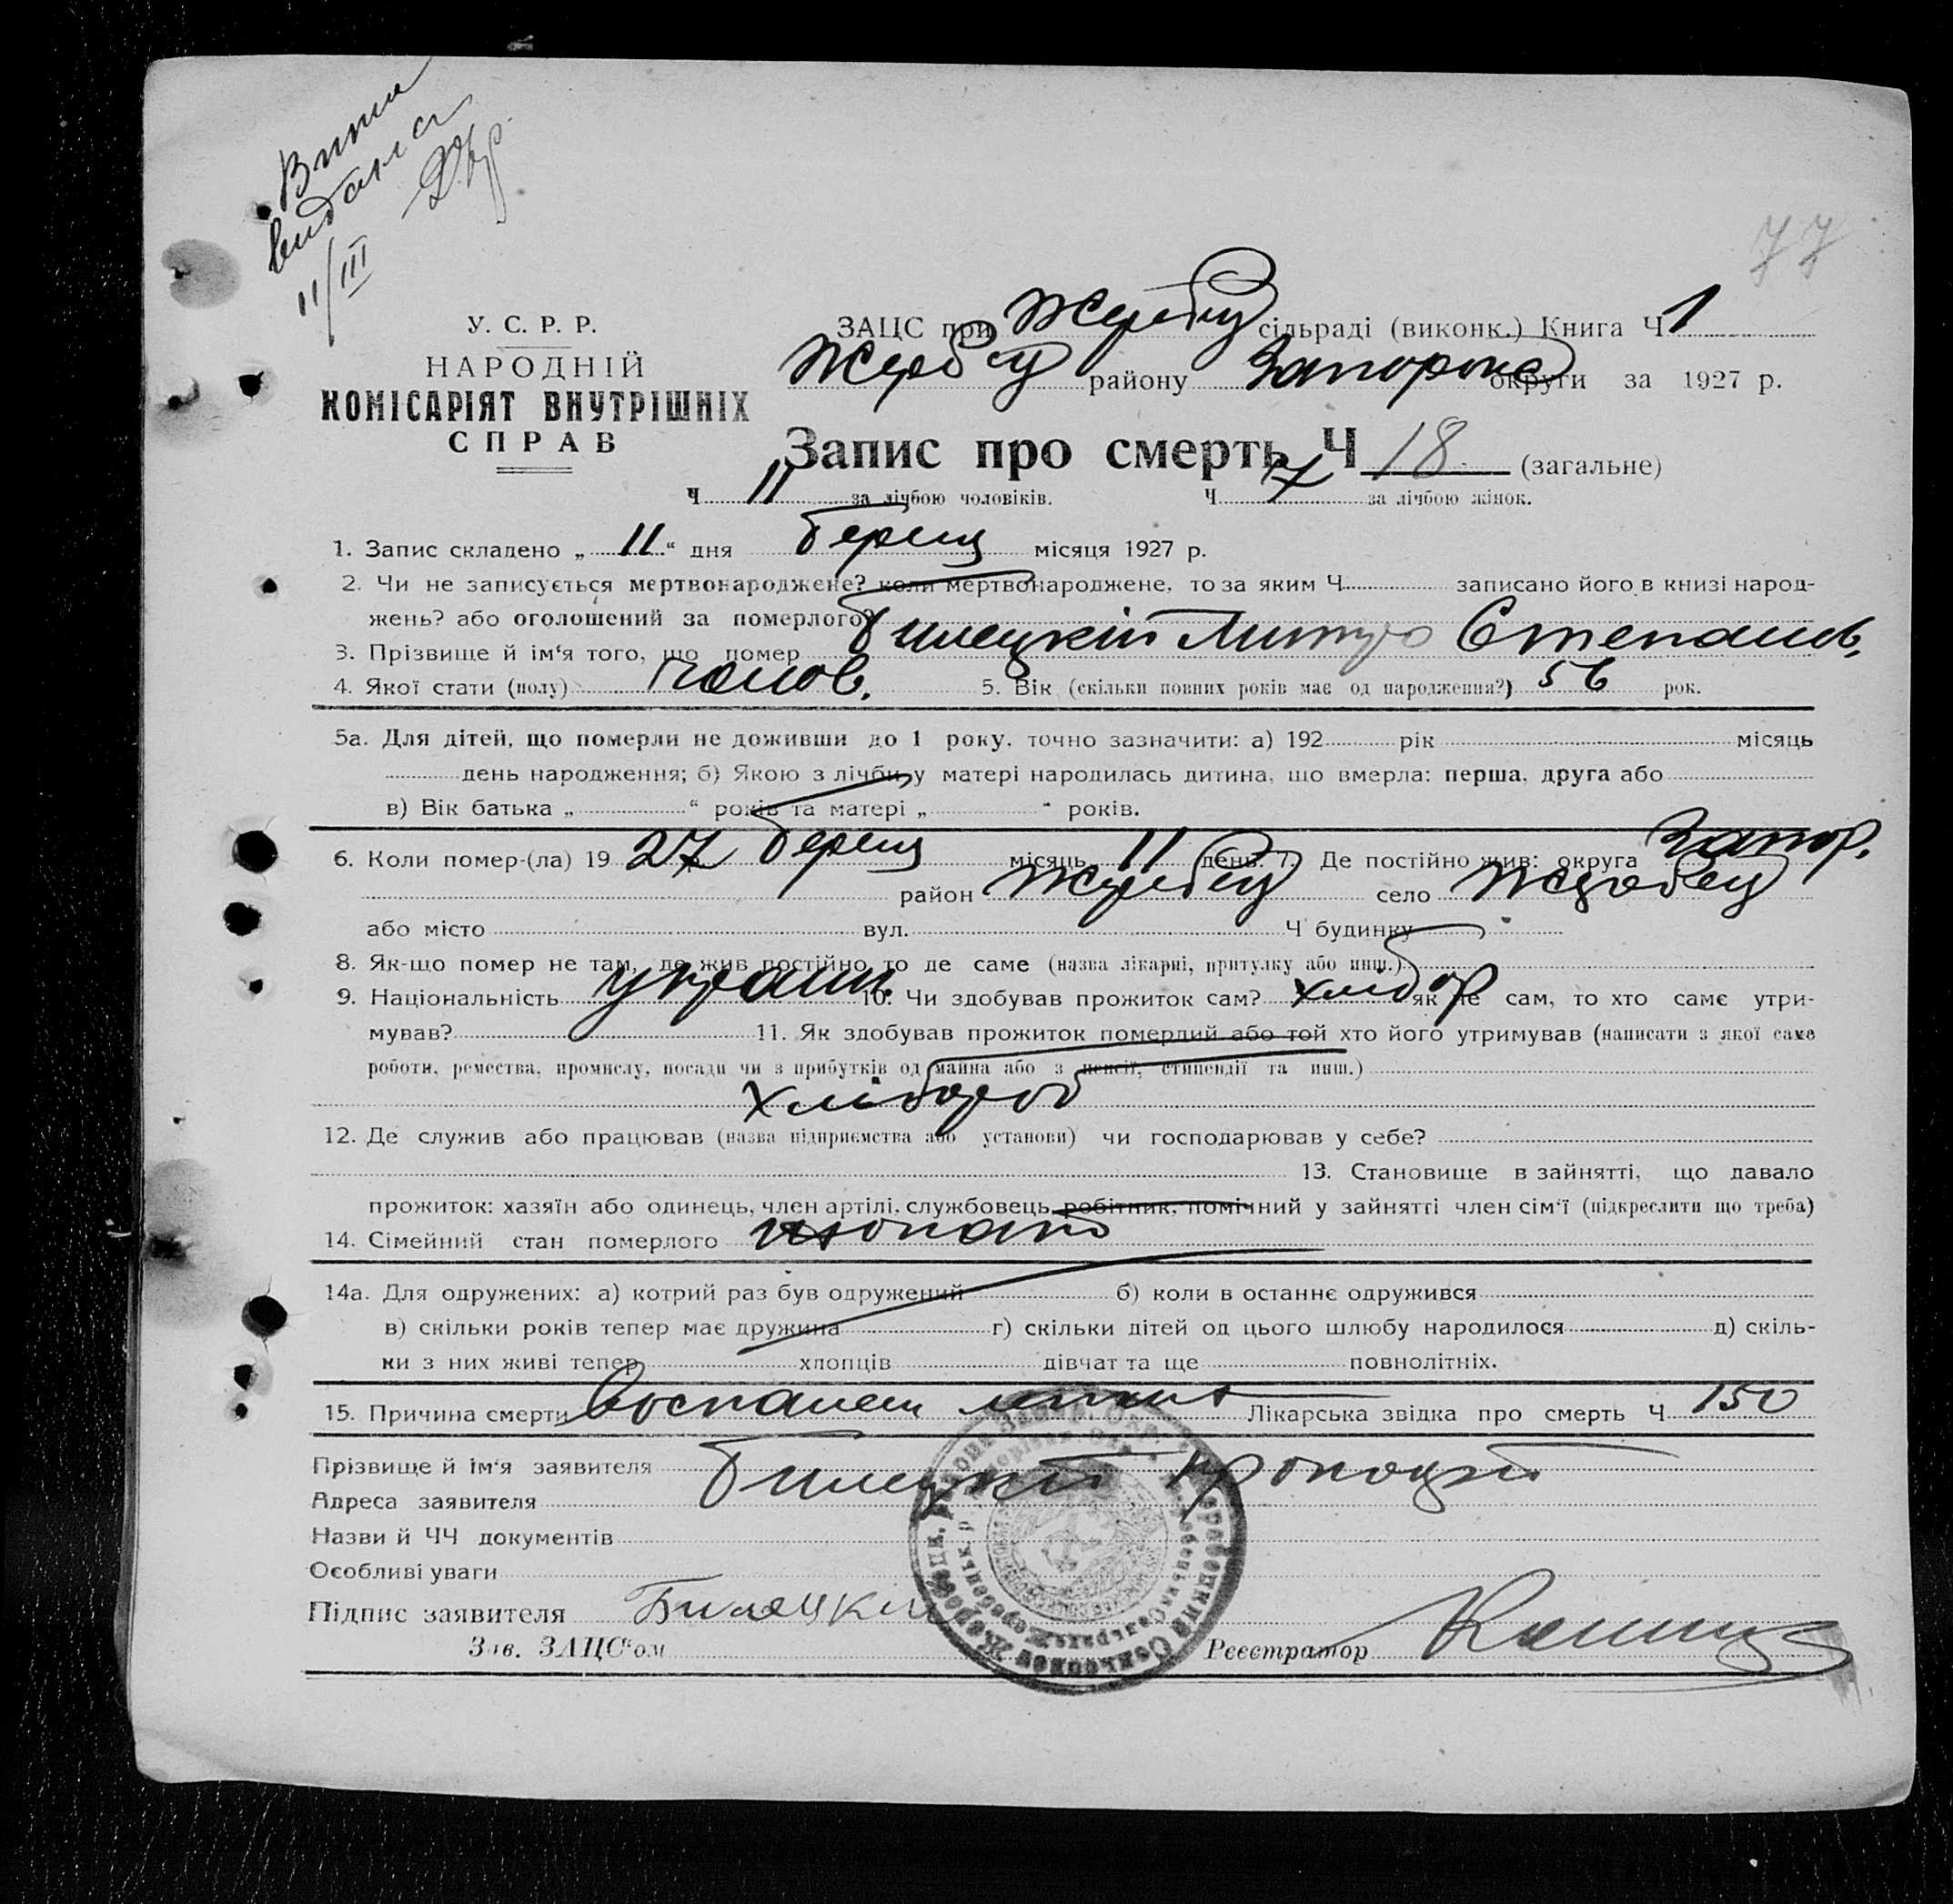 Випи
видана
11/III
77
У. С. Р. Р.
НАРОДНІЙ
КОМІСАРІЯТ ВНУТРІШНІХ
СПРАВ
ЗАЦС при Жеребец сільраді (виконк.) Книга Ч 1
Жеребец району Запорожс округи за 1927 р.
Запис про смерть Ч 18 (загальне)
Ч 11 за лічбою чоловіків. Ч 7 за лічбою жінок.
1. Запис складено „ 11 “ дня берец місяця 1927 р.
2. Чи не записується мертвонароджене? коли мертвонароджене, то за яким Ч записано його в книзі народ-
жень? або оголошений за померлого?
3. Прізвище й ім'я того, що помер Билецкий Степанов.
4. Якої стати (полу) чолов. 5. Вік (скільки повних років має од народження?) 56 рок.
5а. Для дітей, що померли не доживши до 1 року, точно зазначити: а) 192 рік місяць
день народження; б) Якою з лічби у матері народилась дитина, що вмерла: перша, друга або
в) Вік батька „ “ років та матері „ “ років.
6. Коли помер-(ла) 19 27 р берец місяць 11 день. 7. Де постійно жив: округа Запор.
район Жеребец село Жеребец
або місто вул. Ч будинку
8. Як-що помер не там, де жив постійно то де саме (назва лікарні, притулку або инш.)
9. Національність україн. 10. Чи здобував прожиток сам? хлібор як не сам, то хто саме утри-
мував? 11. Як здобував прожиток померлий або той хто його утримував (написати з якої саме
роботи, ремества, промислу, посади чи з прибутків од майна або з пенсії, стипендії та инш.)
хлібороб
12. Де служив або працював (назва підприємства або установи) чи господарював у себе?
13. Становище в зайнятті, що давало
прожиток: хазяїн або одинець, член артілі, службовець, робітник, помічний у зайнятті член сім'ї (підкреслити що треба)
14. Сімейний стан померлого
14а. Для одружених: а) котрий раз був одружений б) коли в останнє одружився
в) скільки років тепер має дружина г) скільки дітей од цього шлюбу народилося д) скіль-
ки з них живі тепер хлопців дівчат та ще повнолітніх.
15. Причина смерти воспален легких Лікарська звідка про смерть Ч 150
Прізвище й ім'я заявителя Билецкий
Адреса заявителя
Назви й ЧЧ документів
Особливі уваги
Підпис заявителя Билецкий
Зав. ЗАЦС'ом Реєстратор